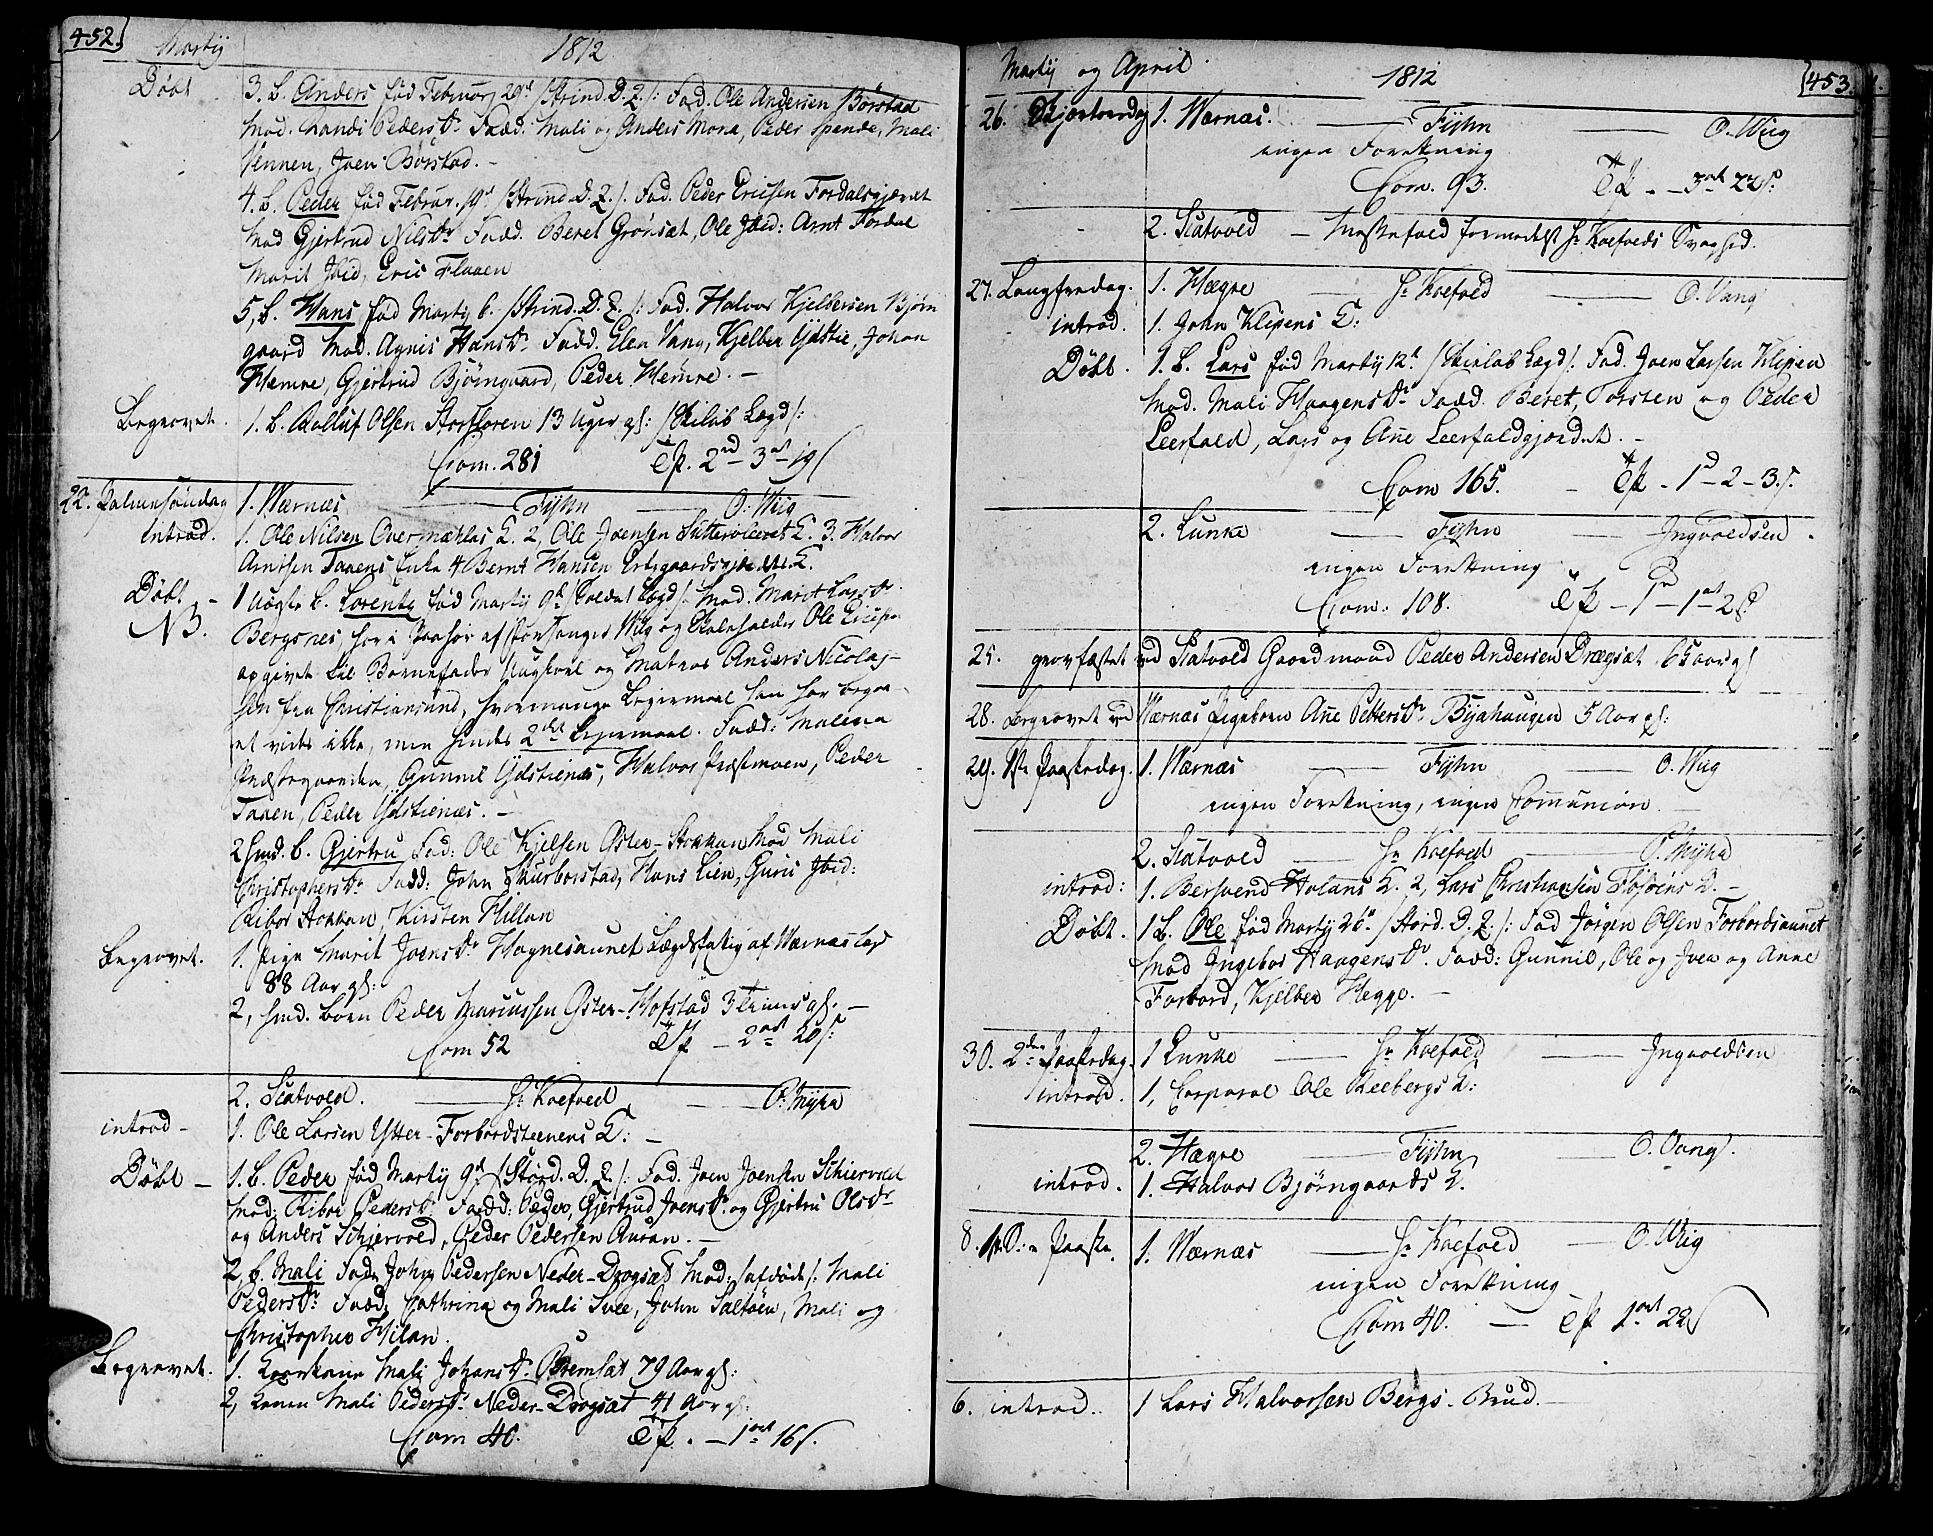 452.
Martÿ 1812
Döbt 3. b. Anders fød Februar 29de /Strind. D. L./: Fad. Ole Andersen Børstad
Mod. Randi Pedersdr Fadd. Mali og Anders Mona, Peder Spende, Mali
Vennen, Joen Børstad. –
4. b. Peder fød Februar. 19de /Strind. D. L./. Fad. Peder Ericsen Fordalsgjerdet
Mod Gjertrud Nilsdr Fadd. Beret Grönsæt, Ole Ibid: Arnt Fordal
Marit Ibid, Eric Flaaen
5, b. Hans fød Martÿ 6. /Strind. D. L./: Fad. Halvor Kjelbersen Bjørn
gaard Mod. Agnes Hansdr Fadd. Elen Vang, Kjelber Ydstie, Johan
Hemre, Gjertrud Bjørngaard, Peder Hemre. –
Begravet. 1. b. Rolluf Olsen Storfloren 13 Uger gl: /Skiløb Lægd/:
Com. 281 Off. 2rd – 3ort – 19 s
22. Palmesöndag 1. Wærnæs Fÿhn O. Wiig
introd. 1. Ole Nilsen Overmæhlas K. 2, Ole Joensen K. 3. Halvor
Arntsen Taaens Enke 4 Bernt Hansen K.
Döbt – 1 uægte b. Lorentz fød Martÿ 9de /Lægd/: Mod. Marit Larsdr
NB. Bergsnes har i Paahør af Forsanger Wiig og Ole
opgivet til Barnefader og Matros Anders Nicolaj-
sen fra Christiansund, hvormange Leiermaal han har begaa-
et vides ikke, men hendes 2det Leiermaal. Fadd: Malena
Præstegaarden, Gunnil Ydstienæs, Halvor Præstmoen, Peder
Taaen, Peder Ydstienæs. –
2 hmd. b. Gjertru Fad: Ole Kjelsen Øster-Stokkan Mod Mali
Christophersdr Fadd: John Skurborstad, Hans Lien, Guru Ibid:
Ribor Stokkan, Kirsten Hillan
Begravet. 1. Pige Marit Joensdr Hognesaunet af Wærnæs Lægd
88 Aar gl:
2, hmd. barn Peder Marcussen Øster-Hofstad 3 Timer gl. –
Com 52 Off – 2ort 20 s.
2. Skatvold. Hr Koefoed O. Myhr
introd – 1. Ole Larsen Ytter-Forbordsteenens K: –
Döbt – 1. b. Peder fød Martÿ 9de /Størd. D. L./: Fad. Joen Joensen Schiervold
Mod: Ribor Pedersdr Fadd: Peder, Gjertrud Joensdr og Gjertru Olsdr
og Anders Schjervold, Peder Pedersen Auran. –
2, b. Mali Fad John Pedersen Neder-Drogsæt Mod: /afdöde/: Mali
Pedersdr Fadd: Cathrina og Mali Svee, John Saltöen, Mali og
Christopher Hilan.
Begravet. 1. Mali Johansdr Bremsæt 79 Aar gl:
2, Konen Mali Pedersdr Neder-Drogsæt 41 Aar gl.
Com 40. Off. – 1ort 16 s.
453.
Martÿ og April. 1812
26. Skjertorsdag 1. Wærnæs. Fÿhn O. Wiig
ingen Forretning
Com. 93. Off. – 3ort 22 s.
2. Skatvold – Messefald formedelst Hr Koefoeds Svaghed.
27. Langfredag. 1. Hægre Hr Koefoed O. Vang
introd. 1. John Klepens K:
Döbt. 1. b. Lars fød Martÿ 12te /Skiøløb Lægd/: Fad. Joen Larsen Klepen
Mod. Mali Haagensdr Fadd. Beret, Torsten og Peder
Leerfald, Lars og Ane Leerfaldgjerdet. –
Com 165. Off – 1rd – 2 – 3 s.
2. Lunke Fÿhn Ingvoldsen.
ingen Forretning
Com: 108. Off – 1rd – 1ort 2 s
25. gravfæstet ved Skatvold Gaardmand Peder Andersen Drægsæt 65 aar gl
28. begravet ved Wærnæs Pigebarn Ane Pettersdr Byahaugen 5 Aar gl:
29. 1ste Paaskedag. 1. Wærnæs Fÿhn O. Wiig
ingen Forretning, ingen Comunion
2. Skatvold Hr Koefoed O. Myhr
introd: 1. Bersvend Holans K. 2, Lars Christiansen K. –
Döbt. 1 b. Ole fød Martÿ 26de /Stord. D. L./: Fad Jörgen Olsen Forbordsaunet
Mod Ingebor Haagensdr. Fadd: Gunnil, Ole og Joen og Anne
Forbord, Kjelber Hegge. –
30. 2den Paaskedag. 1 Lunke Hr Koefoed Ingvoldsen
introd. 1, Corporal Ole Reebergs K:
2. Hægre Fÿhn O. Vang.
introd. 1. Halvor Bjørngaards K.
8. Paaske. 1. Wærnæs Hr Koefoed O. Wiig
ingen Forretning
Com 40. – Off 1ort 22 s
6. introd. 1 Lars Halvorsen Bergs. Brud.